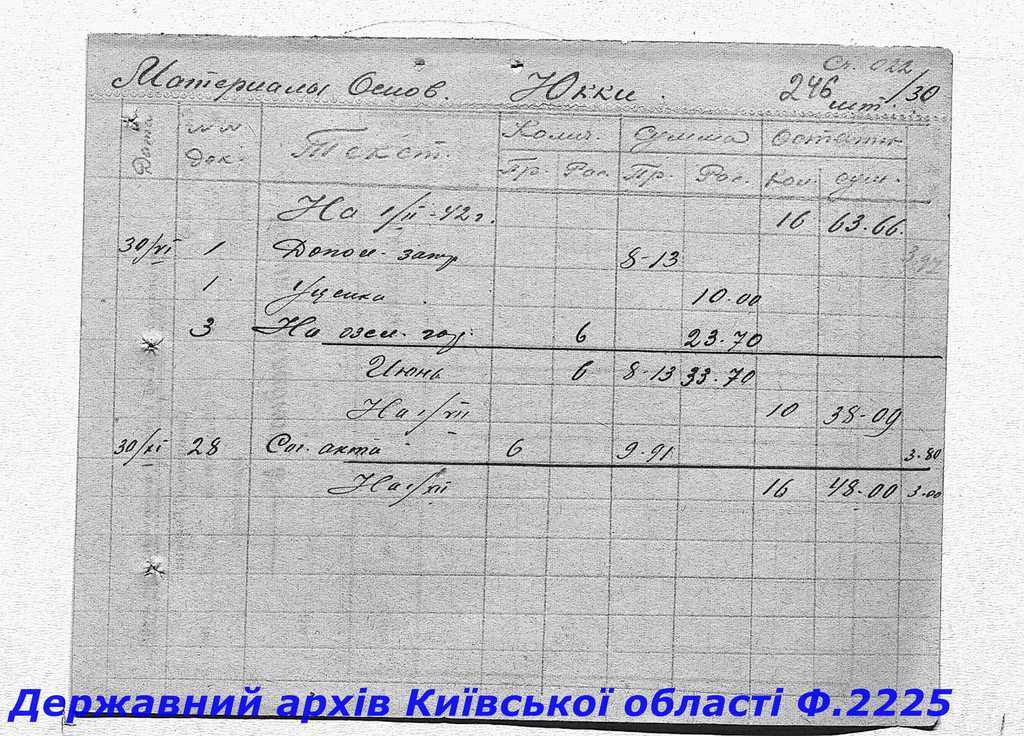 Сч. 022
Материалы Основ. Юкки. 246 шт. /30
Дата №№ док. Текст. Колич. Сумма Остаток
Пр. Рас. Пр. Рас. Кол. сум.
На 1/II-42 г. 16 63.66.
30/VI 1 Допол. затр 8-13
1 Уценка 10.00
3 На озел. гор. 6 23.70
Июнь 6 8-13 33.70
На 1/VII 10 38-09
30/XI 28 Сог. акта 6 9-91 3.80
На 1/XII 16 48-00 3-00
Державний архів Київської області Ф.2225